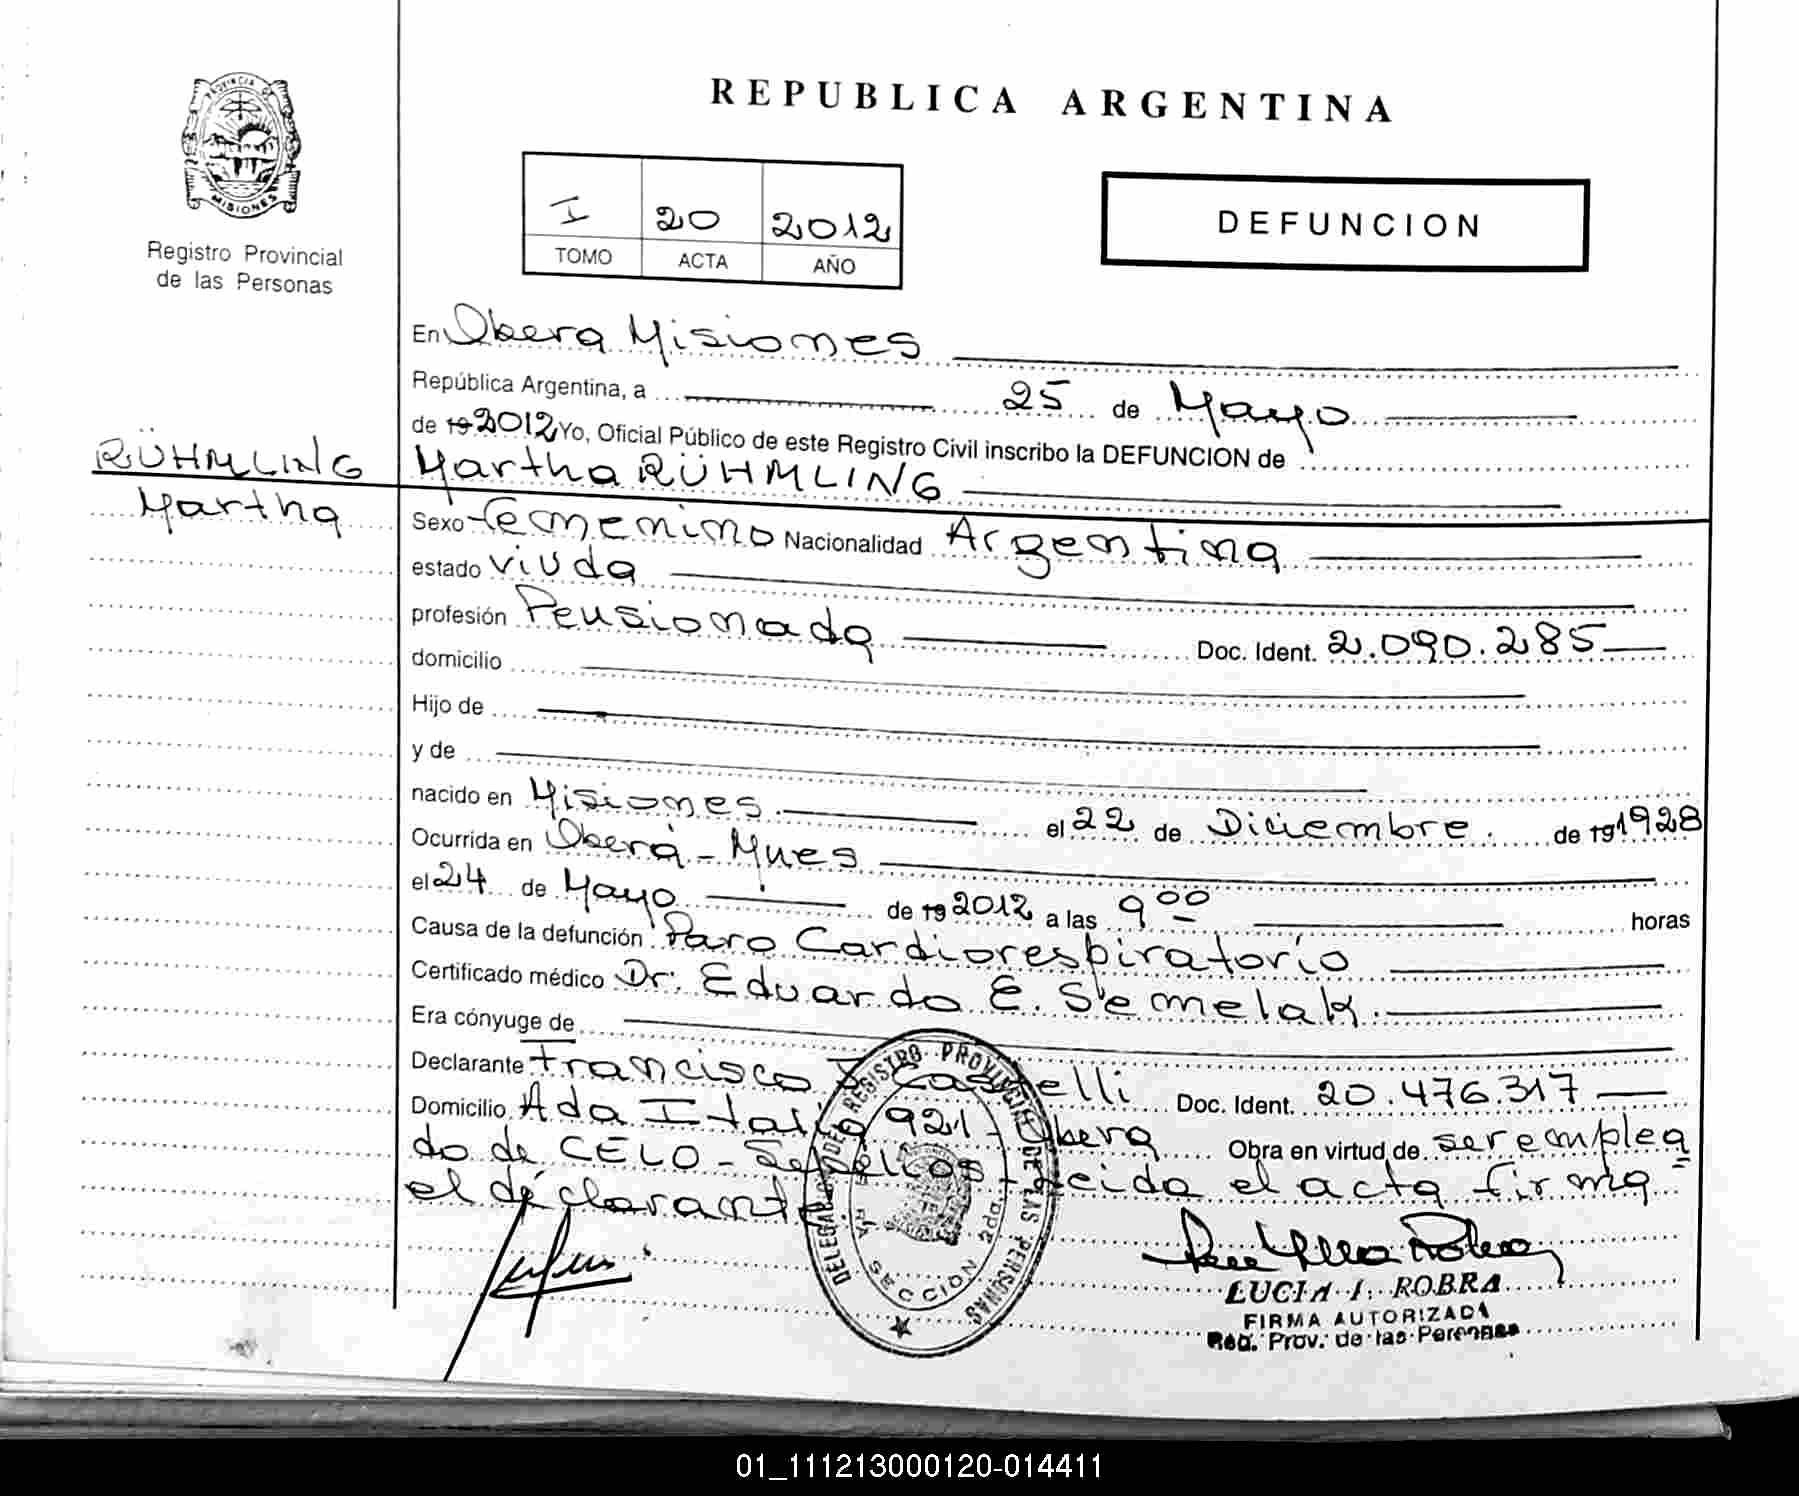 PROVINCIA DE
MISIONES
Registro Provincial
de las Personas
REPUBLICA ARGENTINA
I 20 2012
TOMO ACTA AÑO
DEFUNCION
En Obera Misiones
República Argentina, a 25 de Mayo
de 19 2012 Yo, Oficial Público de este Registro Civil inscribo la DEFUNCION de
RÜHMLING
Martha
Martha RÜHMLING
Sexo femenino Nacionalidad Argentina
estado viuda
profesión Pensionada Doc. Ident. 2.090.285
domicilio
Hijo de
y de
nacido en Misiones el 22 de Diciembre de 19 1928
Ocurrida en Oberá - Mnes
el 24 de Mayo de 19 2012 a las 9 00 horas
Causa de la defunción Paro Cardiorespiratorio
Certificado médico Dr. Eduardo E. Semelak
Era cónyuge de
Declarante Francisco Doc. Ident. 20.476.317
Domicilio Ada Italia 921 - Obera Obra en virtud de ser emplea
do de CELO - Sepelios - Leida el acta firma
el declarante
DELEGACION DEL REGISTRO PROVINCIAL DE LAS PERSONAS
SECCION 2da.
LUCIA I. ROBRA
FIRMA AUTORIZADA
Reg. Prov. de las Personas
01_111213000120-014411